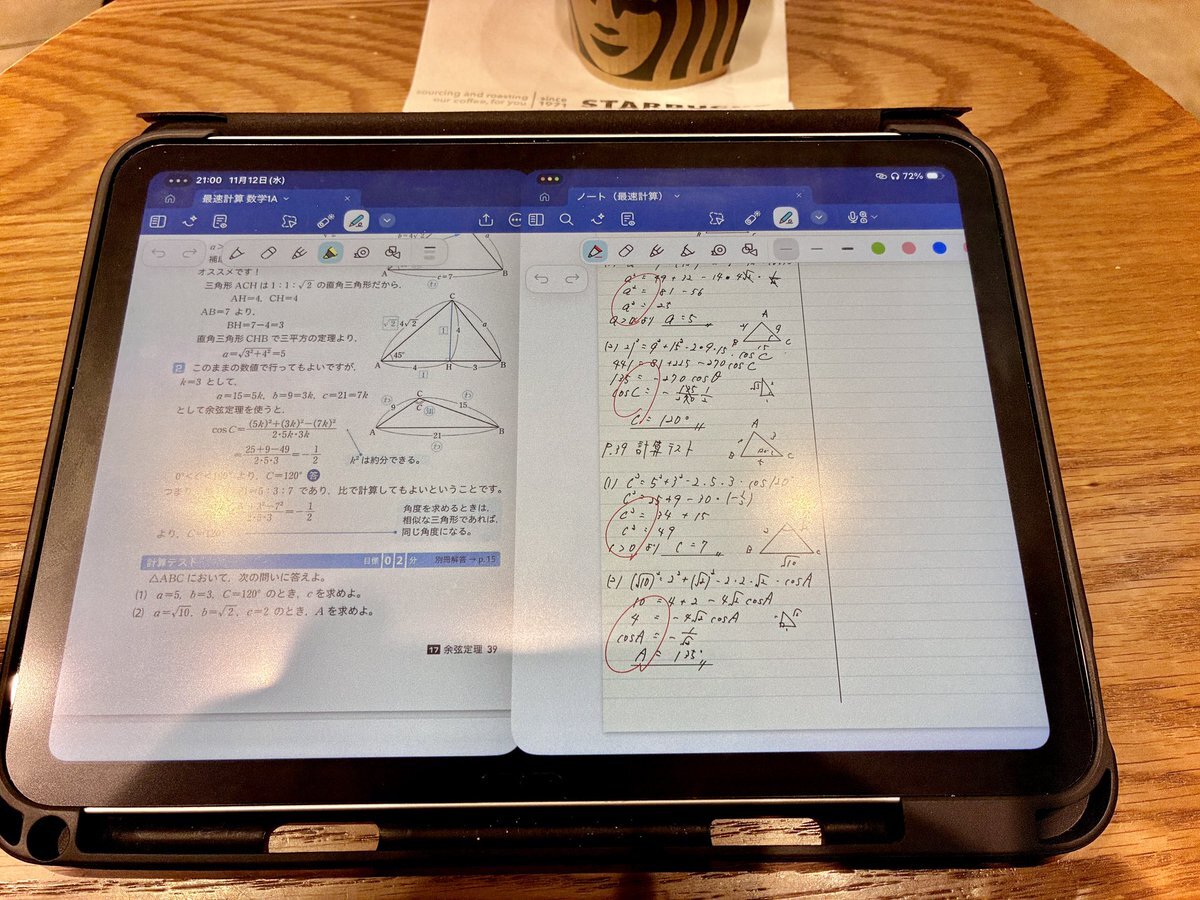 sourcing and roasting
our coffee, for you
since
1971
STARBUCKS
21:00 11月12日(水)
72%
最速計算 数学1A
ノート（最速計算）
オススメです！
三角形ACHは1：1：√2 の直角三角形だから，
AH=4, CH=4
AB=7 より，
BH=7−4=3
直角三角形CHBで三平方の定理より，
a=√3²+4²=5
A
B
c=7
C
√2
4√2
1
4
a
45°
A
4
H
3
B
1
2 このままの数値で行ってもよいですが，
k=3 として，
a=15=5k, b=9=3k, c=21=7k
として余弦定理を使うと，
cosC=(5k)²+(3k)²−(7k)²/2・5k・3k
=25+9−49/2・5・3=−1/2
k²は約分できる。
C
9
15
A
21
B
より，C=120° 答
5：3：7 であり，比で計算してもよいということです。
=−1/2
より，C=120°
角度を求めるときは，
相似な三角形であれば，
同じ角度になる。
計算テスト
目標 02 分
別冊解答→p.15
△ABCにおいて，次の問いに答えよ。
(1) a=5, b=3, C=120° のとき，cを求めよ。
(2) a=√10, b=√2, c=2 のとき，Aを求めよ。
17 余弦定理 39
a²=81−56
a²=25
a>0より a=5
(2) 21²=9²+15²−2・9・15・cosC
441=81+225−270cosC
135=−270cosθ
cosC=−135/270 1/2
C=120°
A
B
C
15
P.39 計算テスト
A
B
C
(1) C²=5²+3²−2・5・3・cos120°
C²=25+9−30・(−1/2)
C²=34+15
C²=49
C>0より C=7
B
C
√10
(2) (√10)²=2²+(√2)²−2・2・√2・cosA
10=4+2−4√2cosA
4=−4√2cosA
cosA=−1/√2
A=135°